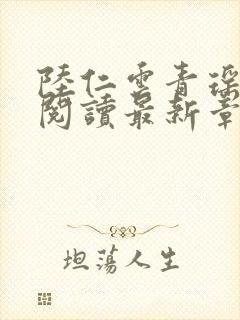 陸仁雲青瑶
閱讀最新章
坦蕩人生